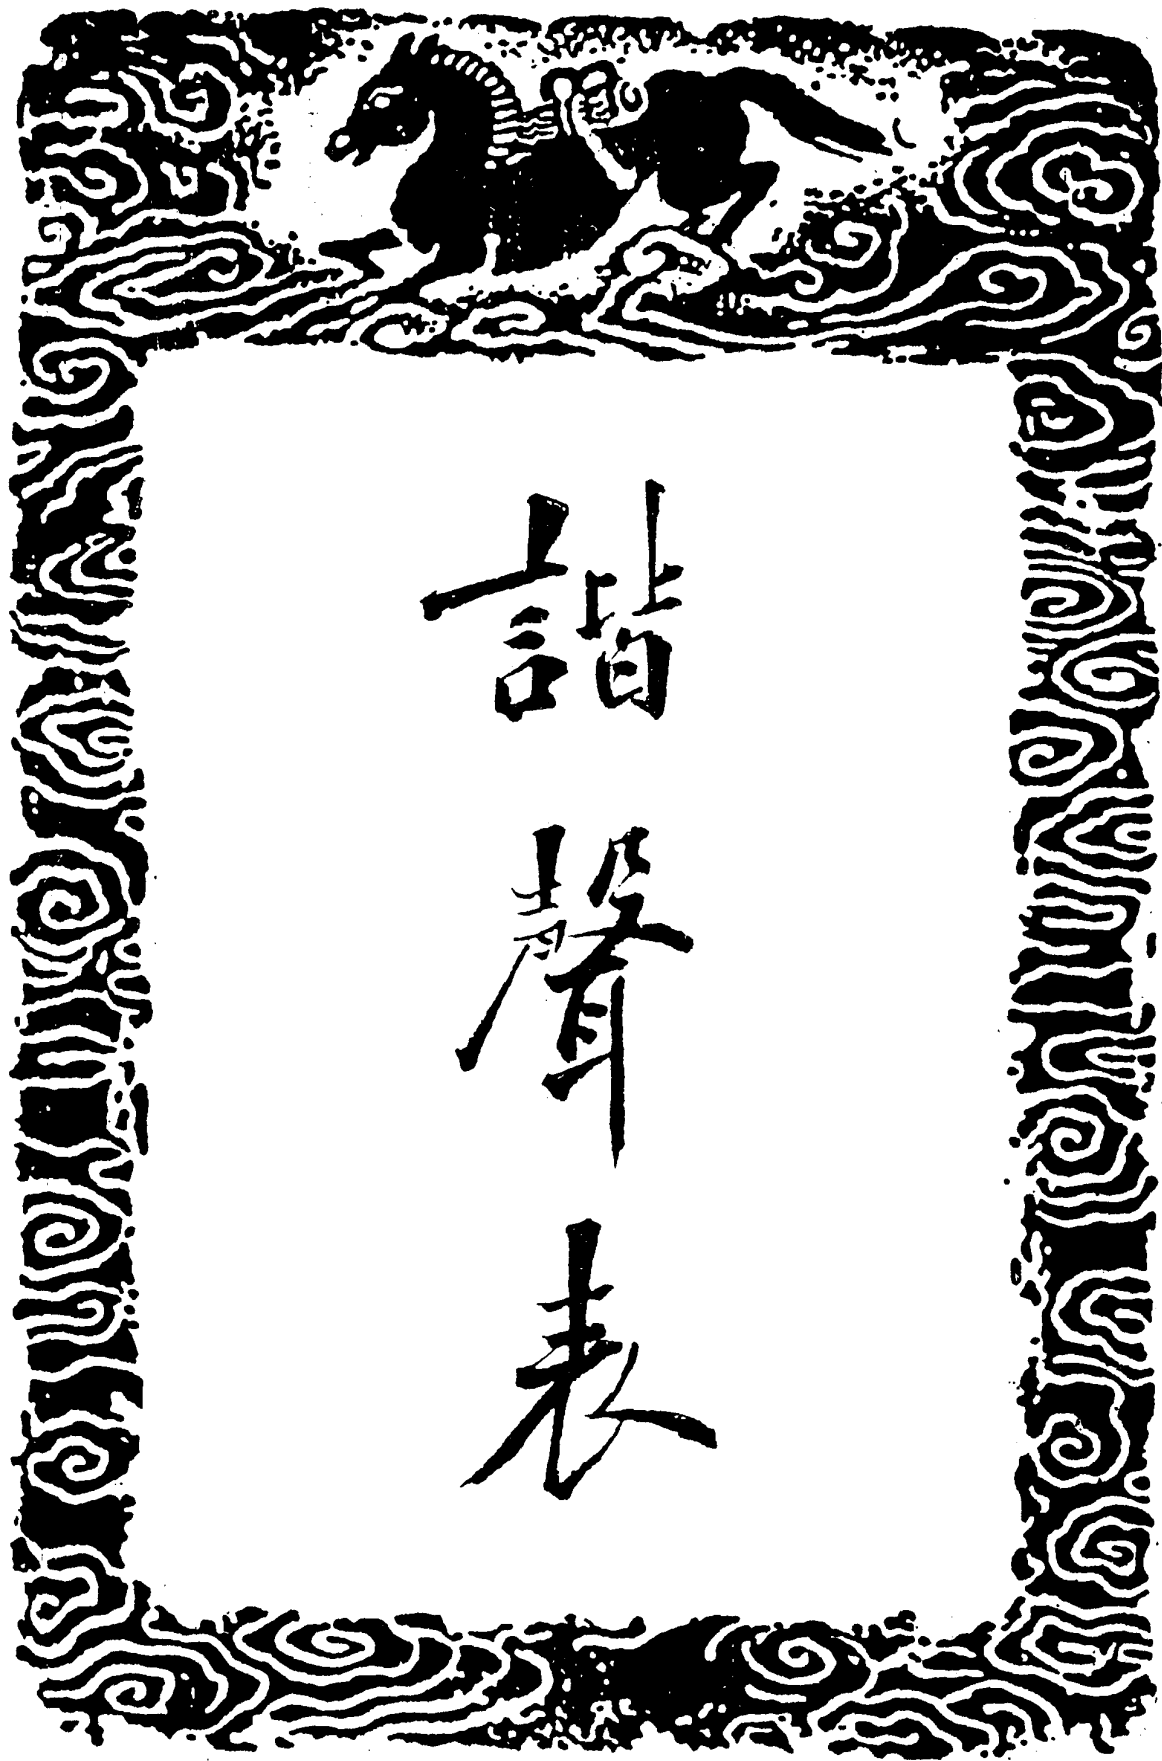 諧聲表